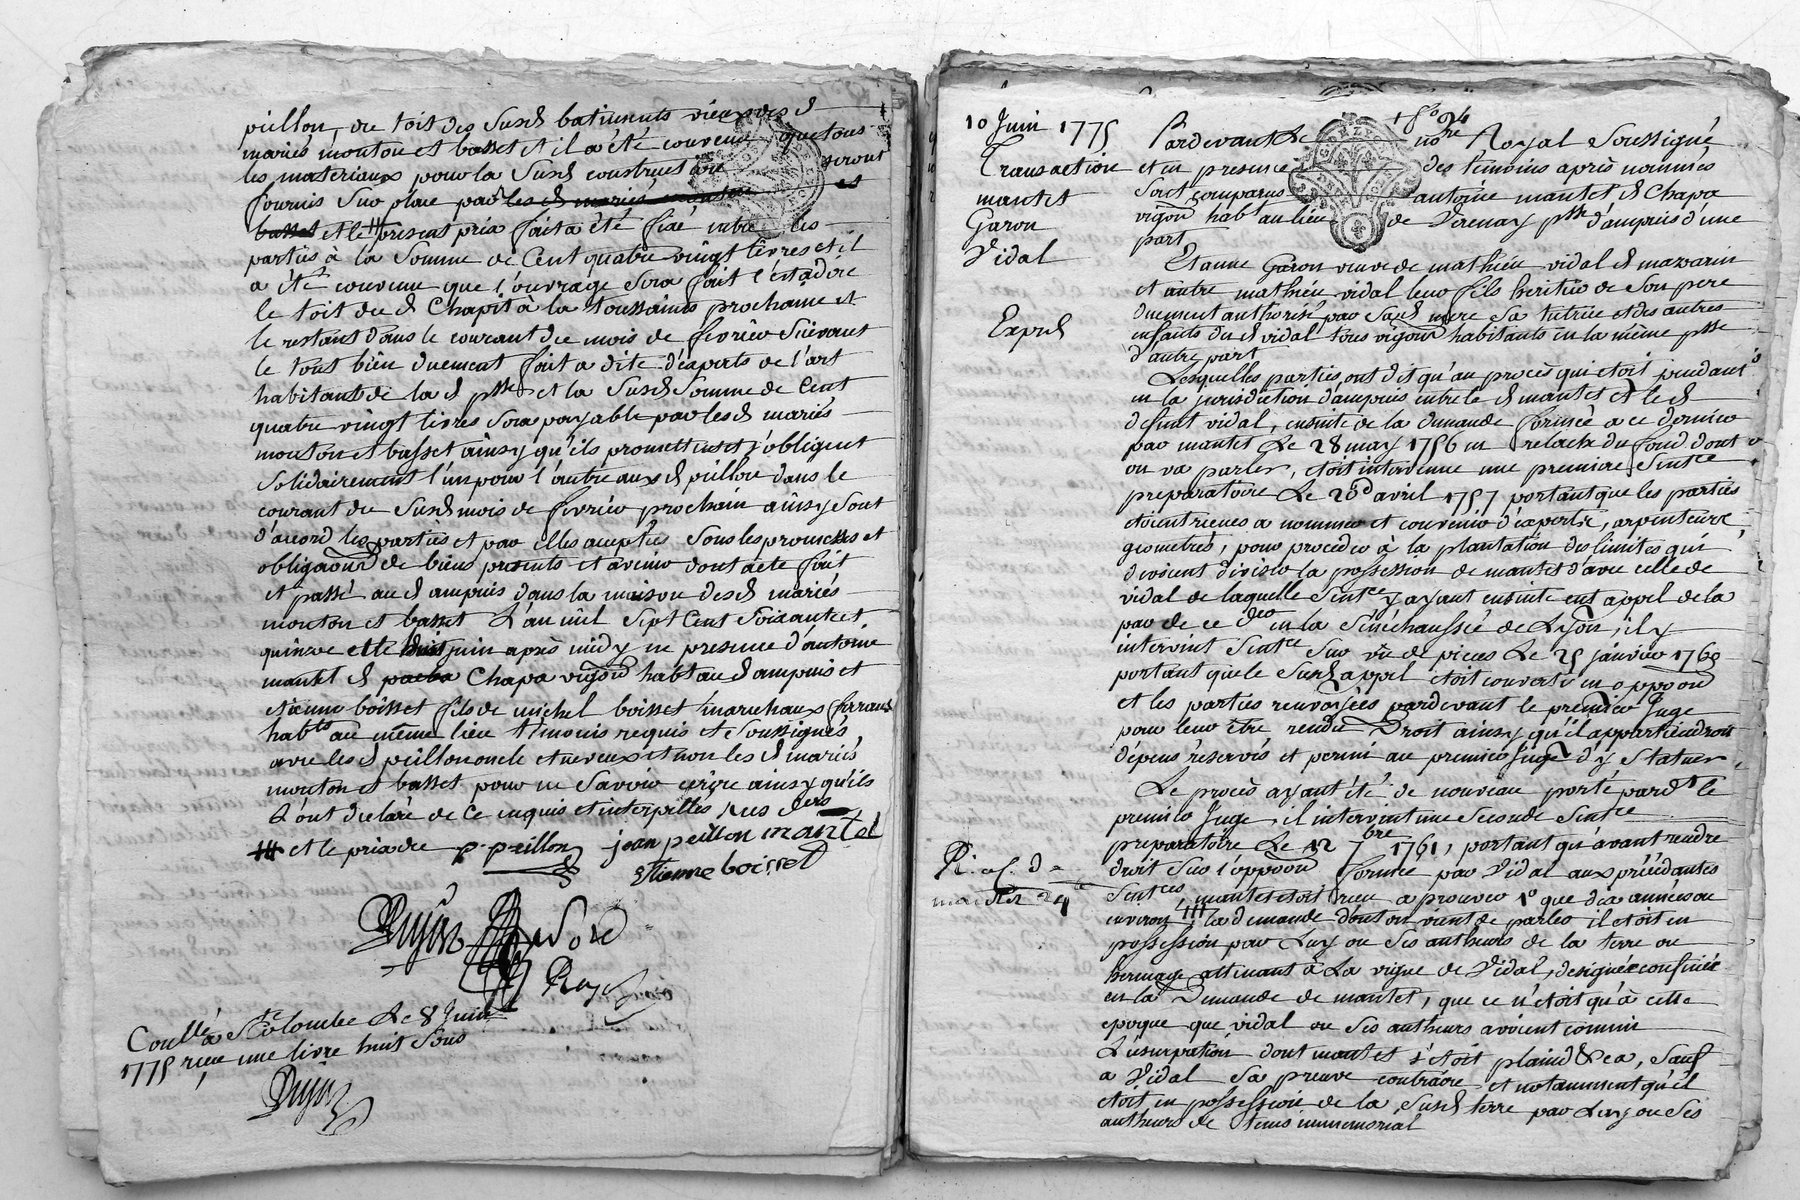 peillon, du toit des susd batiments vieux des d
mariés mouton et basset et il a été convenu que tous
les materiaux pour la susd construction seront
fournis sur place par les d mariés mouton et
basset et le present prix fait a été fixé entre les
parties a la somme de Cent quatre vingt livres et il
a été convenu que l'ouvrage sera fait c'est a dire
le toit du d Chapit à la toussaints prochaine et
le restant dans le courant du mois de fevrier suivant
le tout bien duement fait a dite d'experts de l'art
habitants de la d psse et la susd somme de Cent
quatre vingt livres sera payable par lesd mariés
mouton et basset ainsy qu'ils promettent et s'obligent
solidairement l'un pour l'autre auxd peillon dans le
courant du susd mois de fevrier prochain ainsy sont
d'accord les parties et par elles acceptés sous les promesses et
obligaons de biens presents et avenir dont acte fait
et passé au d ampuis dans la maison desd mariés
mouton et basset L'an mil sept Cent soixante et
quinze et le huit juin après midy en presence d'antoine
mantet d Chapa vigron habt au d ampuis et
etienne boisset fils de michel boisset marechaux ferrant
habts au même lieu temoins requis et soussignés
avec les d peillon oncle et neveux et non les d mariés
mouton et basset pour ne savoir ecrire ainsy qu'ils
L'ont declaré de ce enquis et interpellés
et le prix du p. peillon jean peillon mantel
Etienne boisset
Conllé a Ste Colombe Le 8 Juin
1775 reçu une livre huit sous
10 Juin 1775
Transaction
mantet
Garon
Vidal
Expd
Pardevant Le nore Royal soussigné
et en presence des temoins après nommés
sont comparus antoine mantet d Chapa
vigron habt au lieu de Verenay psse d'ampuis d'une
part
Et anne Garon veuve de mathieu vidal d mazarin
et autre mathieu vidal leur fils heritier de son pere
duement authorisé par sad mere sa tutrice et des autres
enfants du d vidal tous vigrons habitants en la même psse
d'autre part
Lesquelles parties ont dit qu'au procès qui etoit pendant
en la jurisdiction d'ampuis entre le d mantet et le d
defunt vidal, ensuite de la demande formée a ce dernier
par mantet Le 28 may 1756 en relache du fond dont
on va parler, etoit intervenue une premiere sentce
preparatoire Le 20 avril 1757 portant que les parties
etoient tenues a nommer et convenir d'experts, arpenteurs
geometres, pour proceder à la plantation des limites qui
devoient diviser la possession de mantet d'avec celle de
vidal de laquelle sentce y ayant ensuite eut appel de la
part de ce der en la senéchaussée de Lyon, il y
intervint sentce sur vû de pieces Le 25 janvier 1760
portant que le susd appel etoit converti en oppoon
et les parties renvoyées pardevant le premier Juge
pour leur être rendu Droit ainsy qu'il appartiendroit
dépens réservés et permi au premier Juge d'y statuer
Le procès ayant été de nouveau porté pardt le
premier Juge, il intervint une seconde sentce
preparatoire Le 12 7bre 1761, portant qu'avant rendre
droit sur l'oppoon formée par Vidal aux précédantes
sentces, mantet etoit tenu a prouver 1° que dix années ou
environ la demande dont on vient de parler il etoit en
possession par Luy ou ses autheurs de la terre ou
hermage attenant à La vigne de Vidal, designée confinée
en la Demande de mantet, que ce n'etoit qu'à cette
epoque que vidal ou ses autheurs avoient commis
L'usurpation dont mantet s'etoit plaind &ca, sauf
a Vidal sa preuve contraire et notamment qu'il
etoit en possession de la susd terre par Luy ou ses
autheurs de tems immemorial